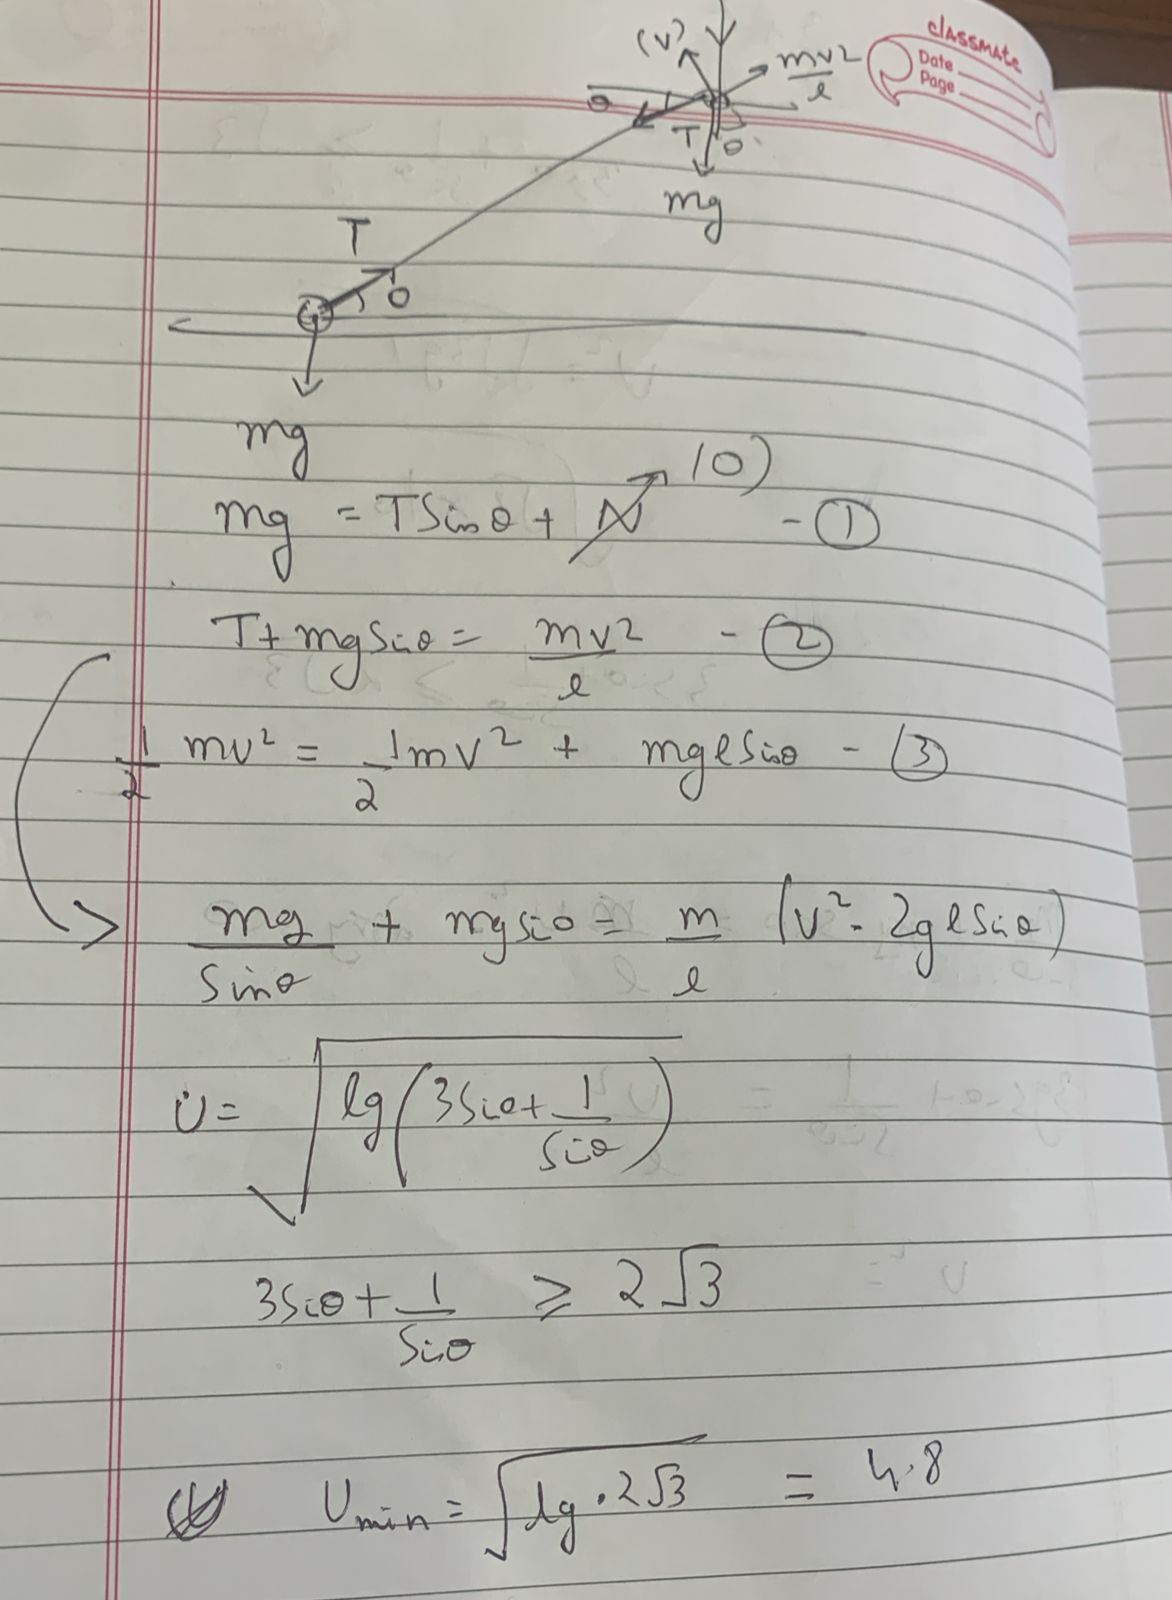 classmate
Date
Page
(v)
mv²/l
θ
T θ
mg
T
θ
mg
mg = T Sin θ + N (0) - ①
T + mg Sin θ = mv²/l - ②
1/2 mu² = 1/2 mv² + mg l Sin θ - ③
mg/Sin θ + mg sin θ = m/l (u² - 2g l Sin θ)
U = √(lg(3 Sin θ + 1/Sin θ))
3 Sin θ + 1/Sin θ ≥ 2√3
U min = √(lg · 2√3) = 4.8